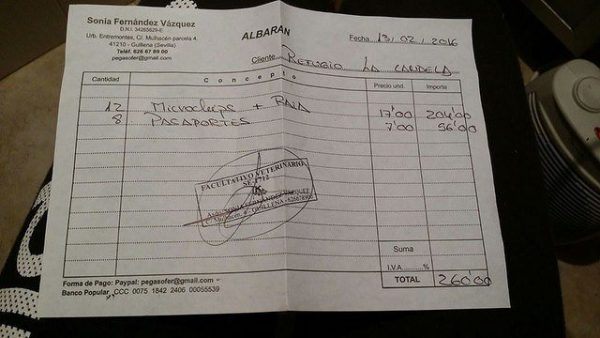 Sonia Fernández Vázquez
D.N.I. 34265629-E
Urb. Entremontes, C/. Mulhacén parcela 4.
41210 - Guillena (Sevilla)
Teléf: 626 67 89 00
pegasofer@gmail.com
ALBARÁN
Fecha 13/02/2016
Cliente REFUGIO LA CANDELA
Cantidad Concepto Precio und. Importe
12 Microchips + RAIA 17'00 204'00
8 PASAPORTES 7'00 56'00
FACULTATIVO VETERINARIO
FERNÁNDEZ VÁZQUEZ
GUILLENA
Suma
I.V.A. ......%
TOTAL 260'00
Forma de Pago: Paypal: pegasofer@gmail.com -
Banco Popular, CCC 0075 1842 2406 00055539